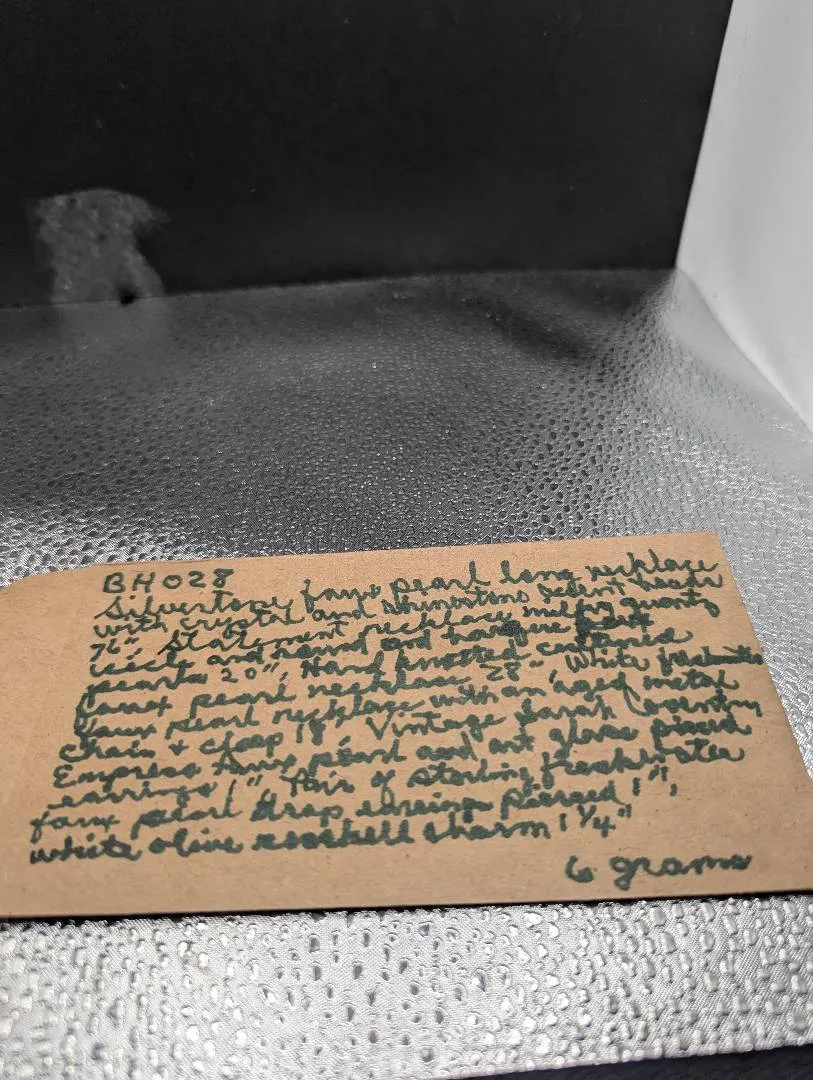 BH028
Silvertone faux pearl long necklace
with crystal and rhinestone accent beads
76", Statement necklace milky quartz
and faux
pearls 20", Hand knotted cultured
faux pearl necklace 28", White freshwater
faux pearl necklace with an aged metal
chain + clasp 18", Vintage Sarah Coventry
Empress faux pearl and art glass pierced
earrings 1", Pair of sterling freshwater
faux pearl drop earrings pierced 1",
white olive seashell charm 1 1/4"
6 grams